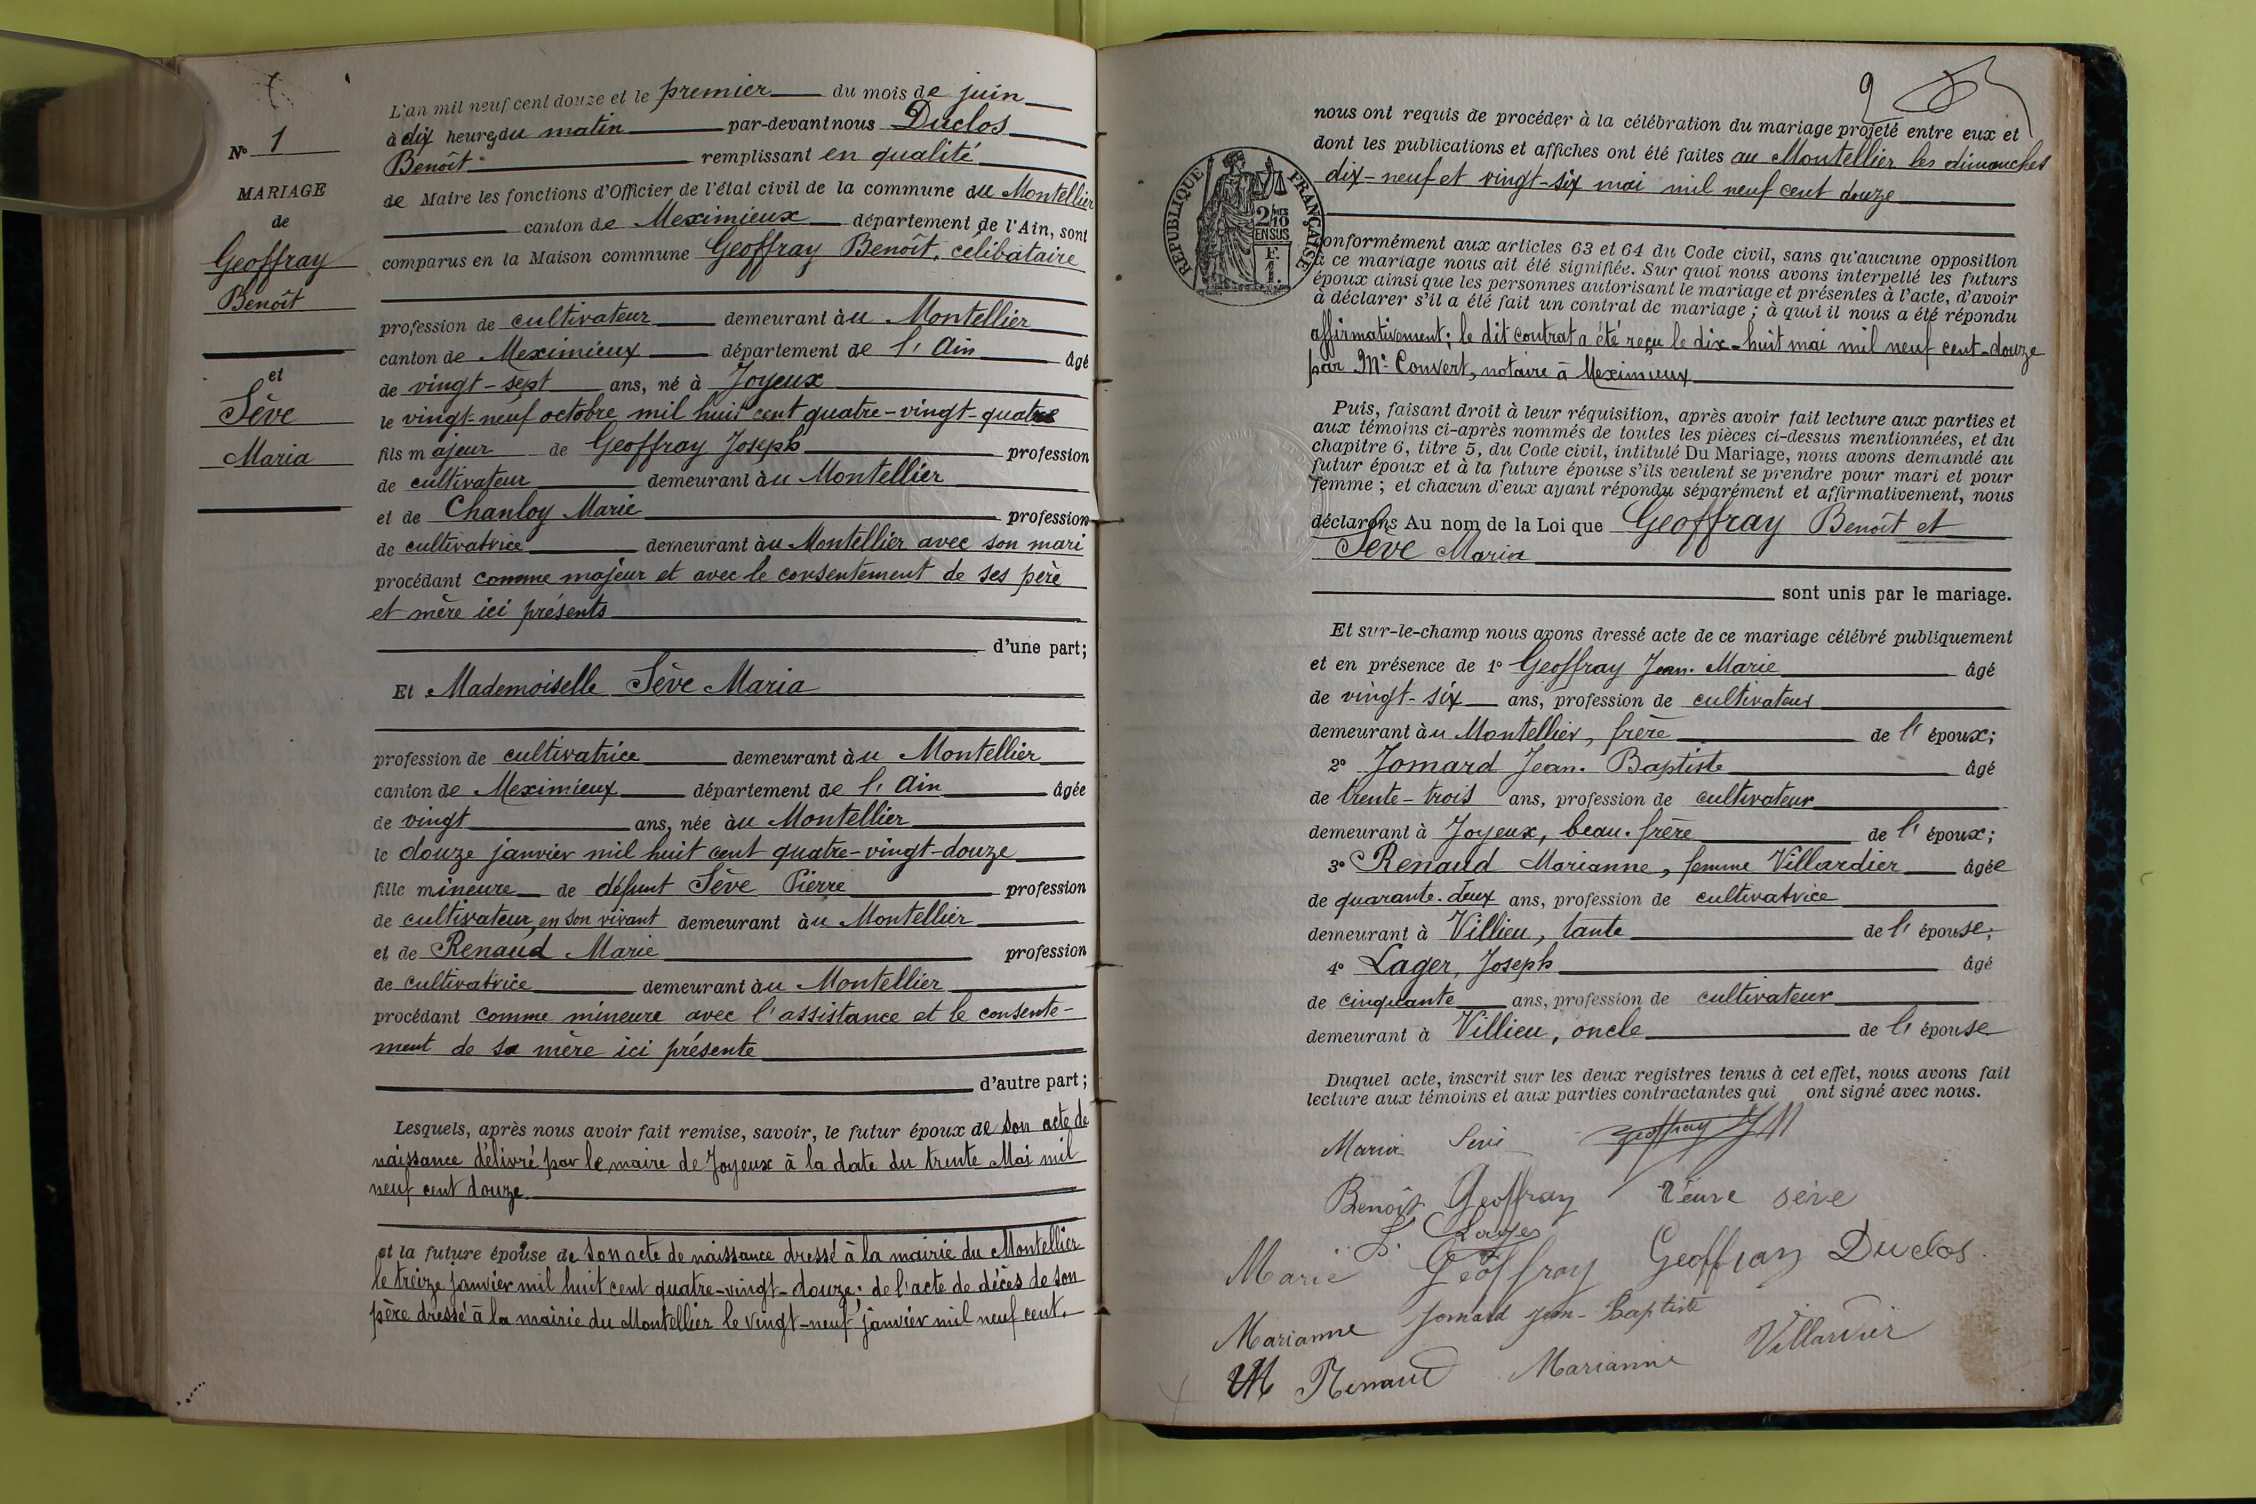 N° 1
MARIAGE
de
Geoffray
Benoît
et
Sève
Maria
L'an mil neuf cent douze et le premier du mois de juin
à dix heures du matin par-devant nous Duclos
Benoît remplissant en qualité
de Maire les fonctions d'Officier de l'état civil de la commune du Montellier
canton de Meximieux département de l'Ain, sont
comparus en la Maison commune Geoffray Benoît, célibataire
profession de cultivateur demeurant au Montellier
canton de Meximieux département de l'Ain âgé
de vingt-sept ans, né à Joyeux
le vingt-neuf octobre mil huit cent quatre-vingt-quatre
fils majeur de Geoffray Joseph profession
de cultivateur demeurant au Montellier
et de Chanloy Marie profession
de cultivatrice demeurant au Montellier avec son mari
procédant comme majeur et avec le consentement de ses père
et mère ici présents
d'une part;
Et Mademoiselle Sève Maria
profession de cultivatrice demeurant au Montellier
canton de Meximieux département de l'Ain âgée
de vingt ans, née au Montellier
le douze janvier mil huit cent quatre-vingt-douze
fille mineure de défunt Sève Pierre profession
de cultivateur, en son vivant demeurant au Montellier
et de Renaud Marie profession
de cultivatrice demeurant au Montellier
procédant comme mineure avec l'assistance et le consente-
ment de sa mère ici présente
d'autre part;
Lesquels, après nous avoir fait remise, savoir, le futur époux de son acte de
naissance délivré par le maire de Joyeux à la date du trente Mai mil
neuf cent douze
et la future épouse de son acte de naissance dressé à la mairie du Montellier
le treize janvier mil huit cent quatre-vingt-douze; de l'acte de décès de son
père dressé à la mairie du Montellier le vingt-neuf janvier mil neuf cent.
2
nous ont requis de procéder à la célébration du mariage projeté entre eux et
dont les publications et affiches ont été faites au Montellier les dimanches
dix-neuf et vingt-six mai mil neuf cent douze
RÉPUBLIQUE FRANÇAISE
2/10
EN SUS
F.
1.
conformément aux articles 63 et 64 du Code civil, sans qu'aucune opposition
à ce mariage nous ait été signifiée. Sur quoi nous avons interpellé les futurs
époux ainsi que les personnes autorisant le mariage et présentes à l'acte, d'avoir
à déclarer s'il a été fait un contrat de mariage; à quoi il nous a été répondu
affirmativement; le dit contrat a été reçu le dix-huit mai mil neuf cent-douze
par Me Convert, notaire à Meximieux
Puis, faisant droit à leur réquisition, après avoir fait lecture aux parties et
aux témoins ci-après nommés de toutes les pièces ci-dessus mentionnées, et du
chapitre 6, titre 5, du Code civil, intitulé Du Mariage, nous avons demandé au
futur époux et à la future épouse s'ils veulent se prendre pour mari et pour
femme; et chacun d'eux ayant répondu séparément et affirmativement, nous
déclarons Au nom de la Loi que Geoffray Benoît et
Sève Maria
sont unis par le mariage.
Et sur-le-champ nous avons dressé acte de ce mariage célébré publiquement
et en présence de 1° Geoffray Jean-Marie âgé
de vingt-six ans, profession de cultivateur
demeurant au Montellier, frère de l'époux;
2° Jomard Jean-Baptiste âgé
de trente-trois ans, profession de cultivateur
demeurant à Joyeux, beau-frère de l'époux;
3° Renaud Marianne, femme Villardier âgée
de quarante-deux ans, profession de cultivatrice
demeurant à Villieu, tante de l'épouse;
4° Lager, Joseph âgé
de cinquante ans, profession de cultivateur
demeurant à Villieu, oncle de l'épouse
Duquel acte, inscrit sur les deux registres tenus à cet effet, nous avons fait
lecture aux témoins et aux parties contractantes qui ont signé avec nous.
Maria Sève Geoffray J M
Benoît Geoffray Veuve sève
Marie Geoffray Geoffray Duclos
Marianne Jomard Jean-Baptiste
Renaud Marianne Villardier